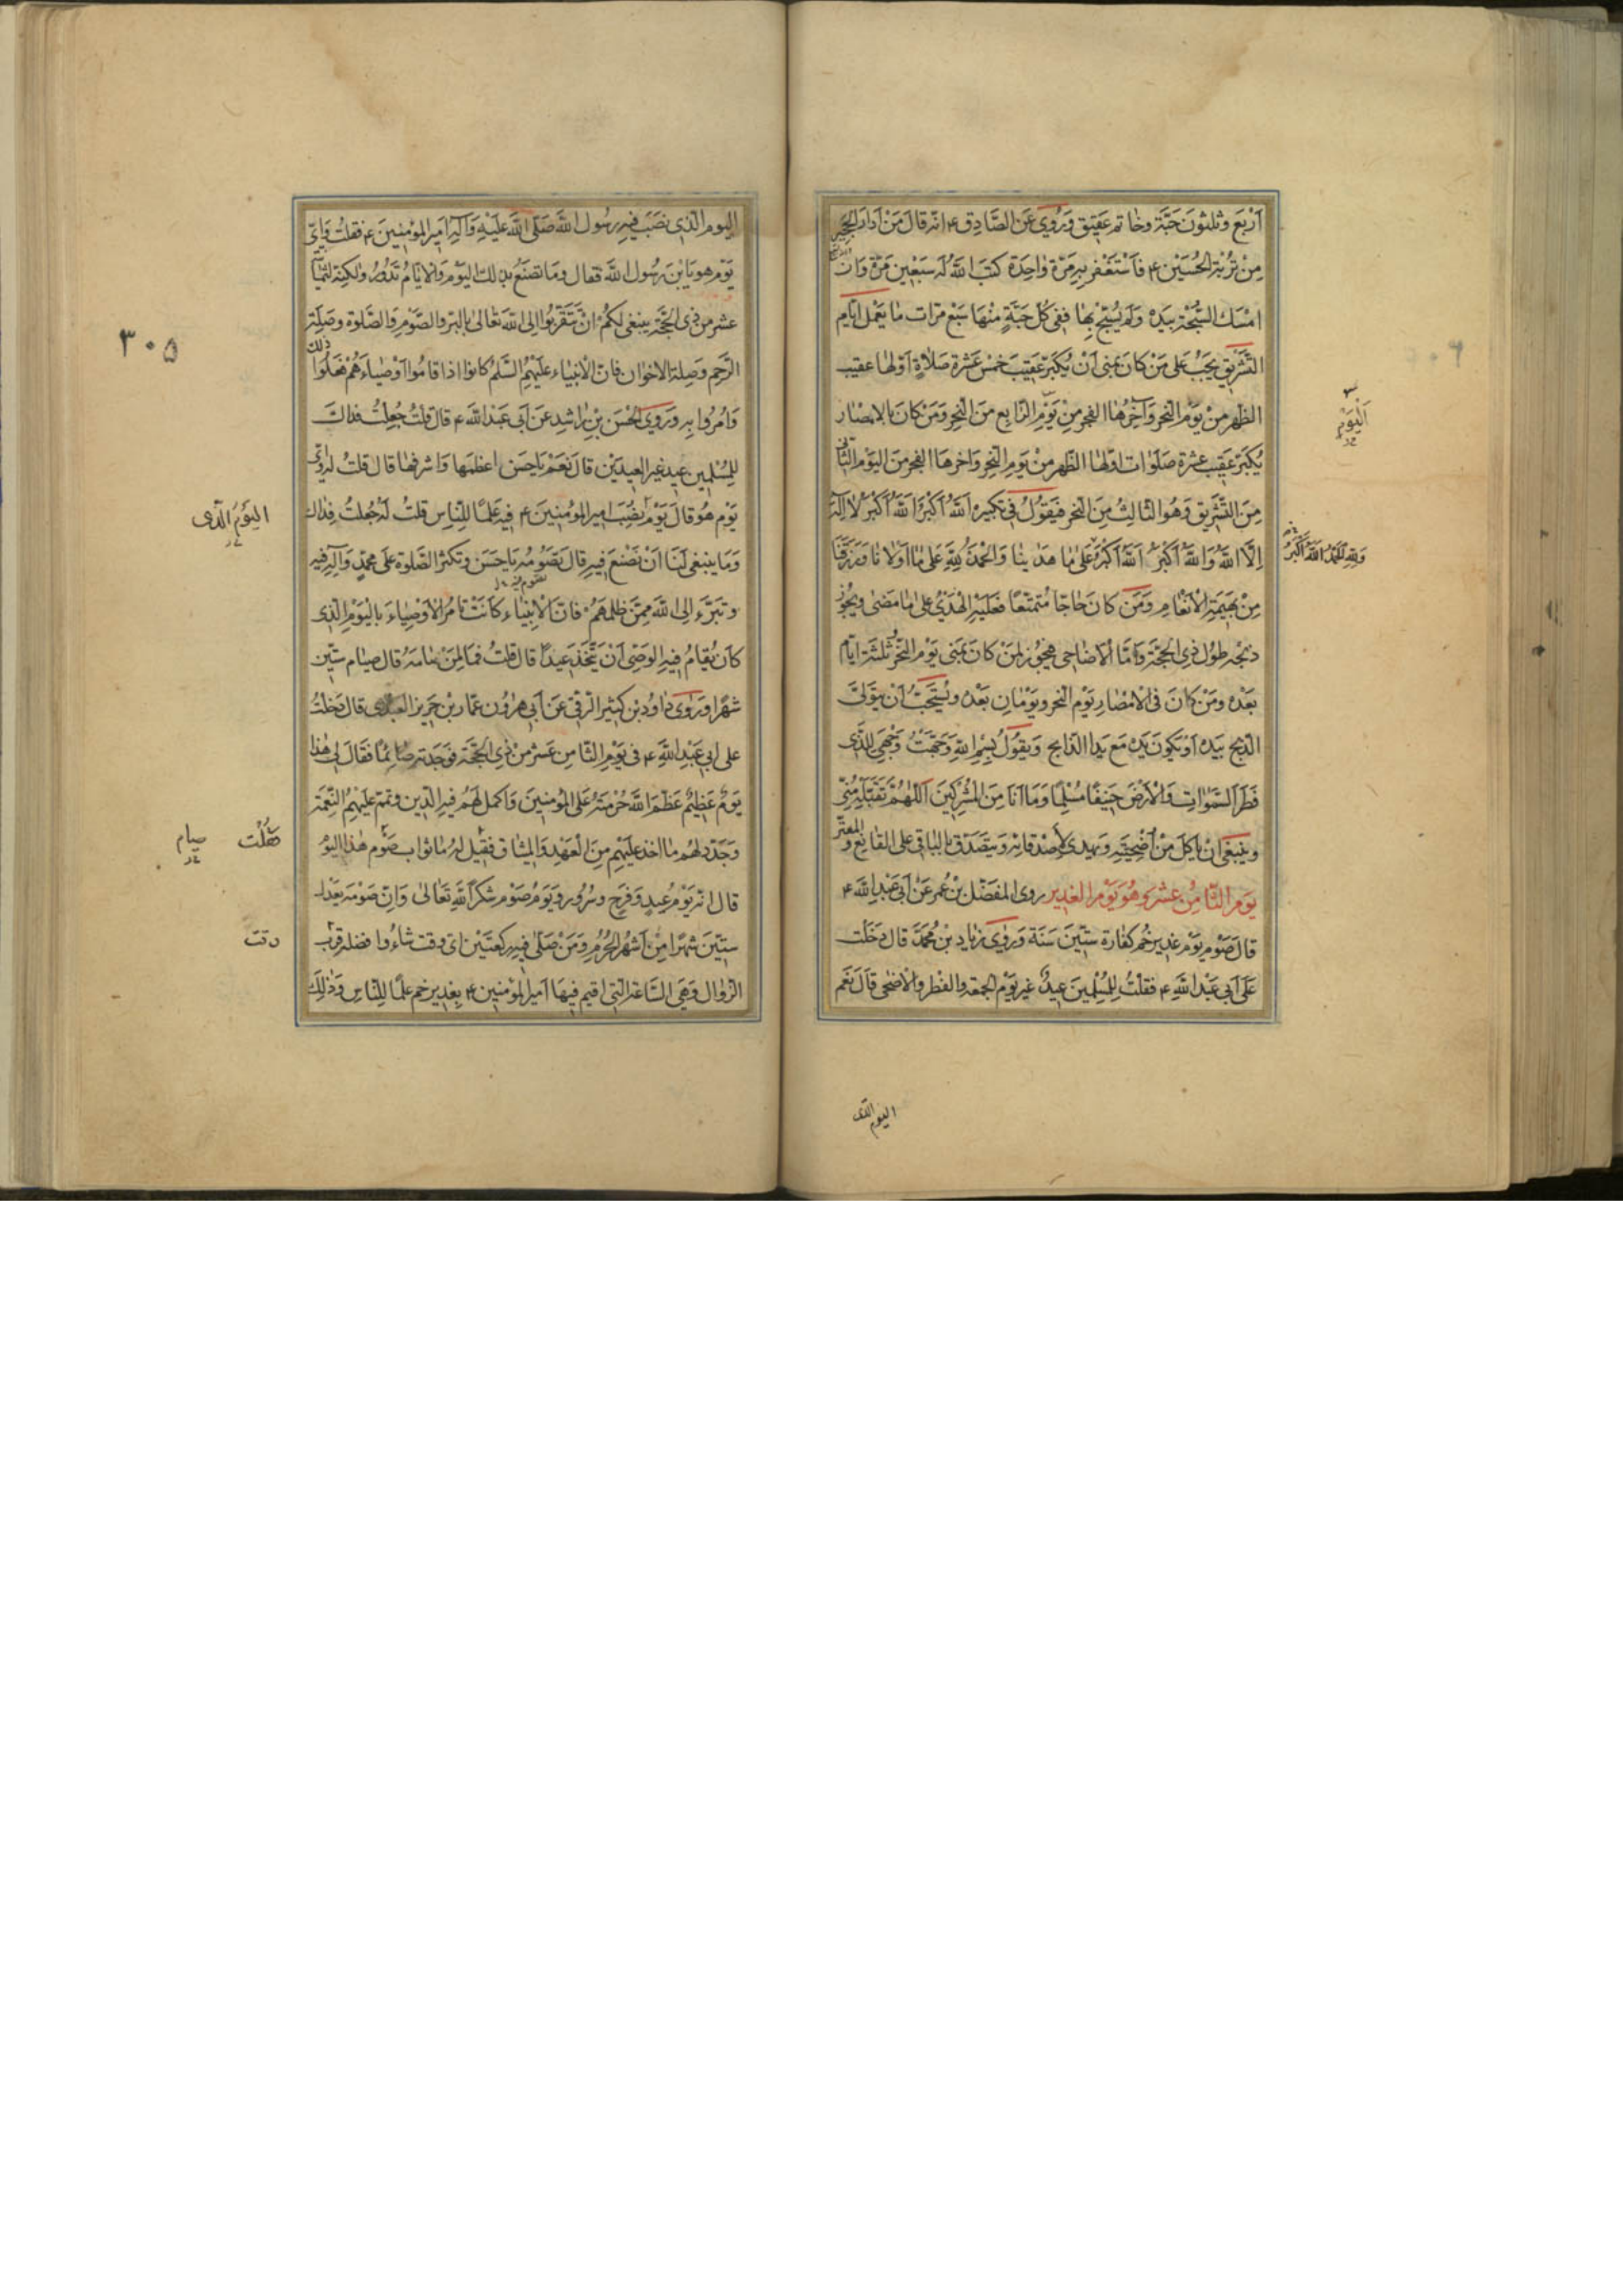 اَرْبَعَ وثلثونَ حَبَّة وخاتم عَقيق وَرُوِيَ عَنِ الصَّادِق ۴ انّه قالَ مَنْ اَدارَ الحجير
مِنْ تُرْبَةِ الحُسَيْن ۴ فَاسْتَغْفر بهِ مَرّة واحِدَة كتبَ اللهُ لَه سَبْعين مَرّة وَان
امْسَكَ السُّبْحَة بيَدِه وَلَم يُسَبّح بِها ففى كُلّ حَبَّةٍ مِنْها سَبْع مَرّات ما يَعْمل ايّام
التَّشريق يَجبُ عَلى مَنْ كانَ بمِنى اَنْ يُكَبّر عَقيبَ خَمْس عَشْرة صَلاةٍ اَوّلها عقيب
الظهر مِنْ يَوْم النحر وَآخِرُها الفجر مِنْ يَوْم الرّابع منَ النحر وَمَنْ كانَ بالامصار
يُكبّر عَقيب عشرة صَلَوات اوّلها الظهر مِنْ يَوم النّحرِ واخرها الفجر منَ اليَوم الثّانى
مِنَ التّشريق وَهُوَ الثالِثُ مِنَ النحر فيَقُولُ فى تكبيره اَللهُ اَكْبَرُ اَللهُ اَكْبَرُ لا اِلهَ
اِلّا اللهُ وَاللهُ اَكْبَرُ اَللهُ اَكْبَرُ عَلى ما هَدينا وَالحَمْدُ لِلّهِ عَلى ما اَوْلانا وَرَزَقَنا
وَلِلّهِ الحَمْدُ اللهُ اَكْبَرُ
مِنْ بَهيمَةِ الاَنْعام وَمَن كانَ حاجّا مُتمتّعًا فعَلَيْهِ الهَدْىُ عَلى ما مَضى ويَجُوز
ذبحه طول ذى الحجّة وَامّا الاَضاحى فيجُوز لمَنْ كانَ بمنى يَوْم النّحر وثلثة ايّام
بَعْدَه ومَنْ كانَ فى الامْصارِ يَوْم النحر ويَوْمانِ بَعْدَه ويُسْتَحَبُّ اَنْ يتَوَلّى
الذّبح بيَده اَوْ يَكونَ يَده مَع يَدِ الذّابح وَيقُولُ بِسْمِ اللهِ وَجّهْتُ وَجْهِىَ لِلّذى
فَطَرَ السَّمواتِ وَالاَرْضَ حَنيفًا مُسْلِمًا وَما اَنَا مِنَ المُشْركينَ اَللّهُمَّ تَقبّله مِنّى
وينبغى اَنْ ياكلَ مِنْ اُضْحِيَّتِه وَيهدى لاَصْدقائِه وَيتَصَدّق بالباقى على القانع و المعترّ
يَوم الثّامِن عشَر وَهُوَ يَوْم الغدير روى المفضّل بن عُمر عَنْ اَبى عَبْدِ الله ۴
قالَ صَوم يَوْم غدير خُم كفّارة ستّينَ سَنَة وَروى زياد بن محُمّد قال دَخَلت
عَلى اَبى عَبْدِ الله ۴ فَقلْتُ لِلمُسْلِمينَ عِيدٌ غير يَوْم الجمعة والفطر والاَضحى قالَ نَعَم
اليوم الّذى
اليوم الّذى نصَبَ فيهِ رسُول الله صَلّى الله عَلَيْهِ وَآلِه اَميرَ المؤمِنينَ ۴ فقلتُ وَاىّ
يَوْم هو يَا بْنَ رَسُول الله فقال وما تصنَعُ بذلك اليَوْم وَالايّامُ تَدُورُ ولكنّه لثمانية
عشر من ذى الحجّة ينبغى لكُمْ اَنْ تَتَقَرّبُوا الى الله تَعالى بالبِرّ والصَّوْم وَالصّلوة وصِلَة
الرَّحِم وَصِلة الاخوان فانّ الاَنبياء عَلَيْهِمُ السّلَم كانوا اذا قامُوا اَوْصياءَهُمْ فعَلُوا ذلك
وَامُروا بِه وَرَوى الحُسن بن راشِد عَن اَبى عَبْدِ الله ۴ قال قلْتُ جُعِلْتُ فداك
لِلمُسْلِمين عيدٌ غيرَ العِيدَيْن قالَ نَعَمْ يا حَسن اعظمها وَاشرفها قال قلتُ له واىّ
يَوْم هُو قالَ يَوْم نُصِبَ امير المؤمنينَ ۴ فيهِ عَلَمًا لِلنّاسِ قلتُ لَه جُعلتُ فِداك
اليَوْمَ الّذى
وَما يَنبغى لَنا اَنْ نصْنَعَ فيهِ قال تصُومُه يا حَسَن وتكثر الصّلوة على محمّدٍ وَآلِه فيه
وتبرّء اِلى الله مِمّن ظلمهُم فانّ الاَنبياء كانَتْ تامُرُ الاَوْصِياءَ باليَوْمِ الّذى
كانَ يُقامُ فيهِ الوَصِىّ اَنْ يَتّخذ عيدًا قالَ قلتُ فما لِمَنْ صامَه قال صيام ستّين
شهرًا وَرَوى داوُد بن كثير الرّقى عَنْ اَبى هرُون عمّار بن حَريز العَبْدى قال دَخلْتُ
على ابى عَبْدِ اللهِ ۴ فى يَوْم الثّامِن عَشر مِنْ ذِى الحجّة فوَجَدته صائِمًا فقالَ لى هذا
يَومٌ عَظيمٌ عَظّمَ الله حُرْمتهُ عَلى المُؤمنينَ وَاكمل لَهُم فيهِ الدّين وتمّم عَلَيْهِمُ النّعْمَة
وَجَدّد لَهُم ما اخذ عَلَيْهِم مِنَ العَهْدِ وَالميثاق فقيل له ما ثواب صَوم هذا اليَوم
صيام
قال انّه يَوْم عيدٍ وَفَرَحٍ وسُرُورٍ وَيَوم صَوْم شكرًا لِلّهِ تَعالى وَانّ صَوْمَه يَعْدل
ستّينَ شهْرًا مِنْ اَشهُر الحُرُم وَمَنْ صَلّى فيهِ ركعتَيْن اىّ وقت شاء وافضله قربُ
وقت
الزّوال وَهىَ السّاعة الّتى اقيم فيها اَمير المؤمنين ۴ بِغدير خم علمًا للنّاس وَذلِكَ
۳۰۵